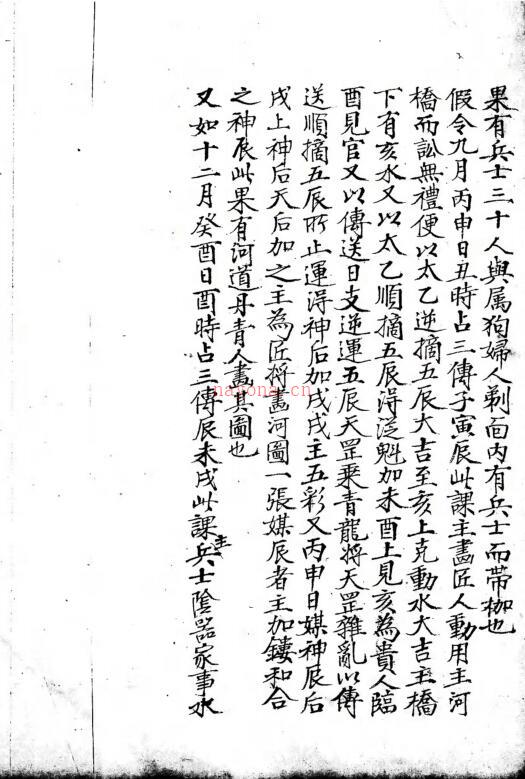 果有兵士三十人與属狗婦人剃面内有兵士而帶枷也
假令九月丙申日丑時占三傳子寅辰此課主畫匠人動用主河
橋而訟無禮便以太乙逆摘五辰大吉至亥上克動水大吉主橋
下有亥水又以太乙順摘五辰得從魁加未酉上見亥為貴人臨
酉見官又以傳送日支逆運五辰天罡乘青龍將天罡雜亂以傳
送順摘五辰所止運得神后加戌戌主五彩又丙申日媒神辰后
戌上神后天后加之主為匠將畫河圖一張媒辰者主加鏤和合
之神辰此果有河道丹青人畫其圖也
又如十二月癸酉日酉時占三傳辰未戌此課主兵士陰器家事水
nayona.cn